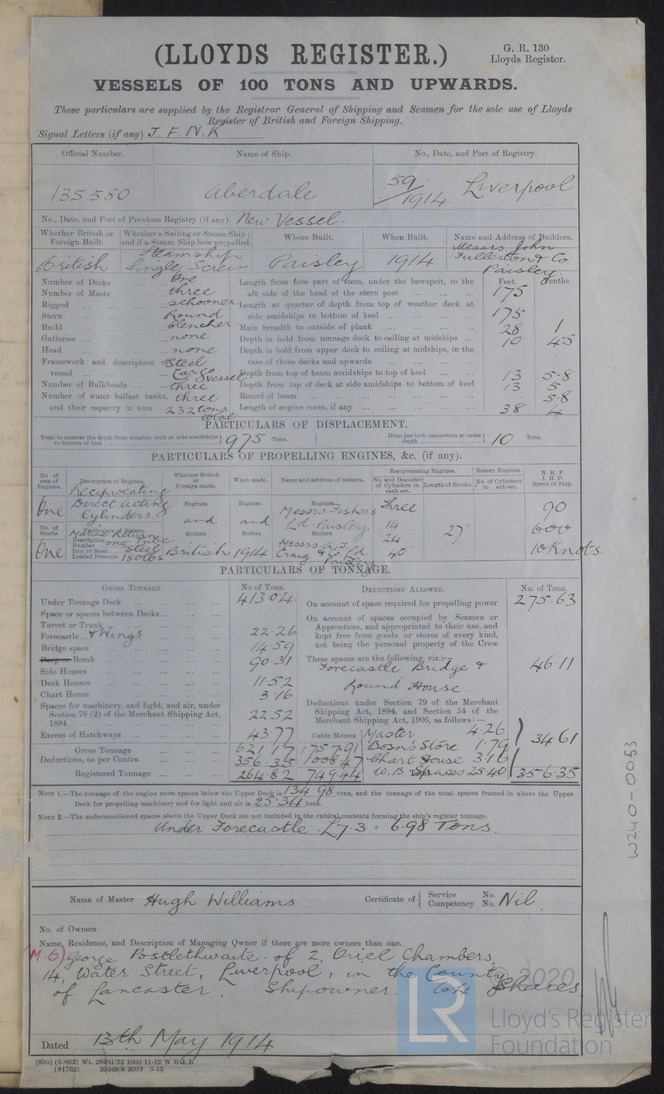 (LLOYDS REGISTER.)
G. R. 130
Lloyds Register.
VESSELS OF 100 TONS AND UPWARDS.
These particulars are supplied by the Registrar General of Shipping and Seamen for the sole use of Lloyds
Register of British and Foreign Shipping.
Signal Letters (if any) J. F. N. K
Official Number. Name of Ship. No., Date, and Port of Registry.
135580 Aberdale 59/1914. Liverpool
No., Date, and Port of Previous Registry (if any). New Vessel.
Whether British or Foreign Built. Whether a Sailing or Steam Ship; and if a Steam Ship how propelled. Where Built. When Built. Name and Address of Builders.
British Steamship Single Screw Paisley 1914. Messrs John Fullerton & Co. Paisley.
Feet. Tenths.
Number of Decks one
Number of Masts three
Rigged schooner
Stern Round
Build Clencher
Galleries none
Head none
Framework and description of vessel Steel Cargo vessel
Number of Bulkheads three
Number of water ballast tanks, three
and their capacity in tons 232 tons total
Length from fore part of stem, under the bowsprit, to the
aft side of the head of the stern post 175
Length at quarter of depth from top of weather deck at
side amidships to bottom of keel 175
Main breadth to outside of plank 28 1
Depth in hold from tonnage deck to ceiling at midships 10 45
Depth in hold from upper deck to ceiling at midships, in the
case of three decks and upwards
Depth from top of beam amidships to top of keel 13 5.8
Depth from top of deck at side amidships to bottom of keel 13 5
Round of beam 5.8
Length of engine room, if any 38 4
PARTICULARS OF DISPLACEMENT.
Total to quarter the depth from weather deck at side amidships to bottom of keel 975 Tons.
Ditto per inch immersion at same depth 10 Tons.
PARTICULARS OF PROPELLING ENGINES, &c. (if any).
No. of sets of Engines. Description of Engines. Whether British or Foreign made. When made. Name and address of makers. Reciprocating Engines. Rotary Engines. N. H. P. I. H. P. Speed of Ship.
No. and Diameter of Cylinders in each set. Length of Stroke. No. of Cylinders in each set.
One Reciprocating Direct acting Cylinders. Engines. Engines. Engines. Messrs Fishers Ld Paisley Three 90
No. of Shafts. Particulars of Boilers. and and 14 24 40 27 600
One Steel Boilers. British Boilers. 1914 Boilers. Craig & Co Ld. Paisley 10 Knots
PARTICULARS OF TONNAGE.
GROSS TONNAGE. No. of Tons.
Under Tonnage Deck 413.04
Space or spaces between Decks
Turret or Trunk
Forecastle & Wings 22.26
Bridge space 14.59
Poop or Break 90.31
Side Houses
Deck Houses 11.52
Chart House 3.16
Spaces for machinery, and light, and air, under
Section 78 (2) of the Merchant Shipping Act,
1894 22.52
Excess of Hatchways 43.77 Cubic Metres
Gross Tonnage 621.17 1757.91
Deductions, as per Contra 356.35 1008.47
Registered Tonnage 264.82 749.44
DEDUCTIONS ALLOWED. No. of Tons.
On account of space required for propelling power 275.63
On account of spaces occupied by Seamen or
Apprentices, and appropriated to their use, and
kept free from goods or stores of every kind,
not being the personal property of the Crew
These spaces are the following, viz.:— 46.11
Forecastle Bridge &
Round House.
Deductions under Section 79 of the Merchant
Shipping Act, 1894, and Section 54 of the
Merchant Shipping Act, 1906, as follows:—
Master 4.26
Bosn's Store 1.79 34.61
Chart House 3.16
W. B Spaces 25.40 356.35
NOTE 1.—The tonnage of the engine room spaces below the Upper Deck is 134.98 tons, and the tonnage of the total spaces framed in above the Upper
Deck for propelling machinery and for light and air is 25.34 tons.
NOTE 2.—The undermentioned spaces above the Upper Deck are not included in the cubical contents forming the ship's register tonnage.
Under Forecastle. L7.3 = 6.98 Tons.
Name of Master Hugh Williams Certificate of { Service No. Competency No. Nil.
No. of Owners
Name, Residence, and Description of Managing Owner if there are more owners than one.
(M.O) George Postlethwaite. of 2, Oriel Chambers,
14, Water Street, Liverpool, in the County
of Lancaster. Shipowner. 64 Shares
Dated 13th May 1914
W240-0063
© 2020
LR
Lloyd's Register
Foundation